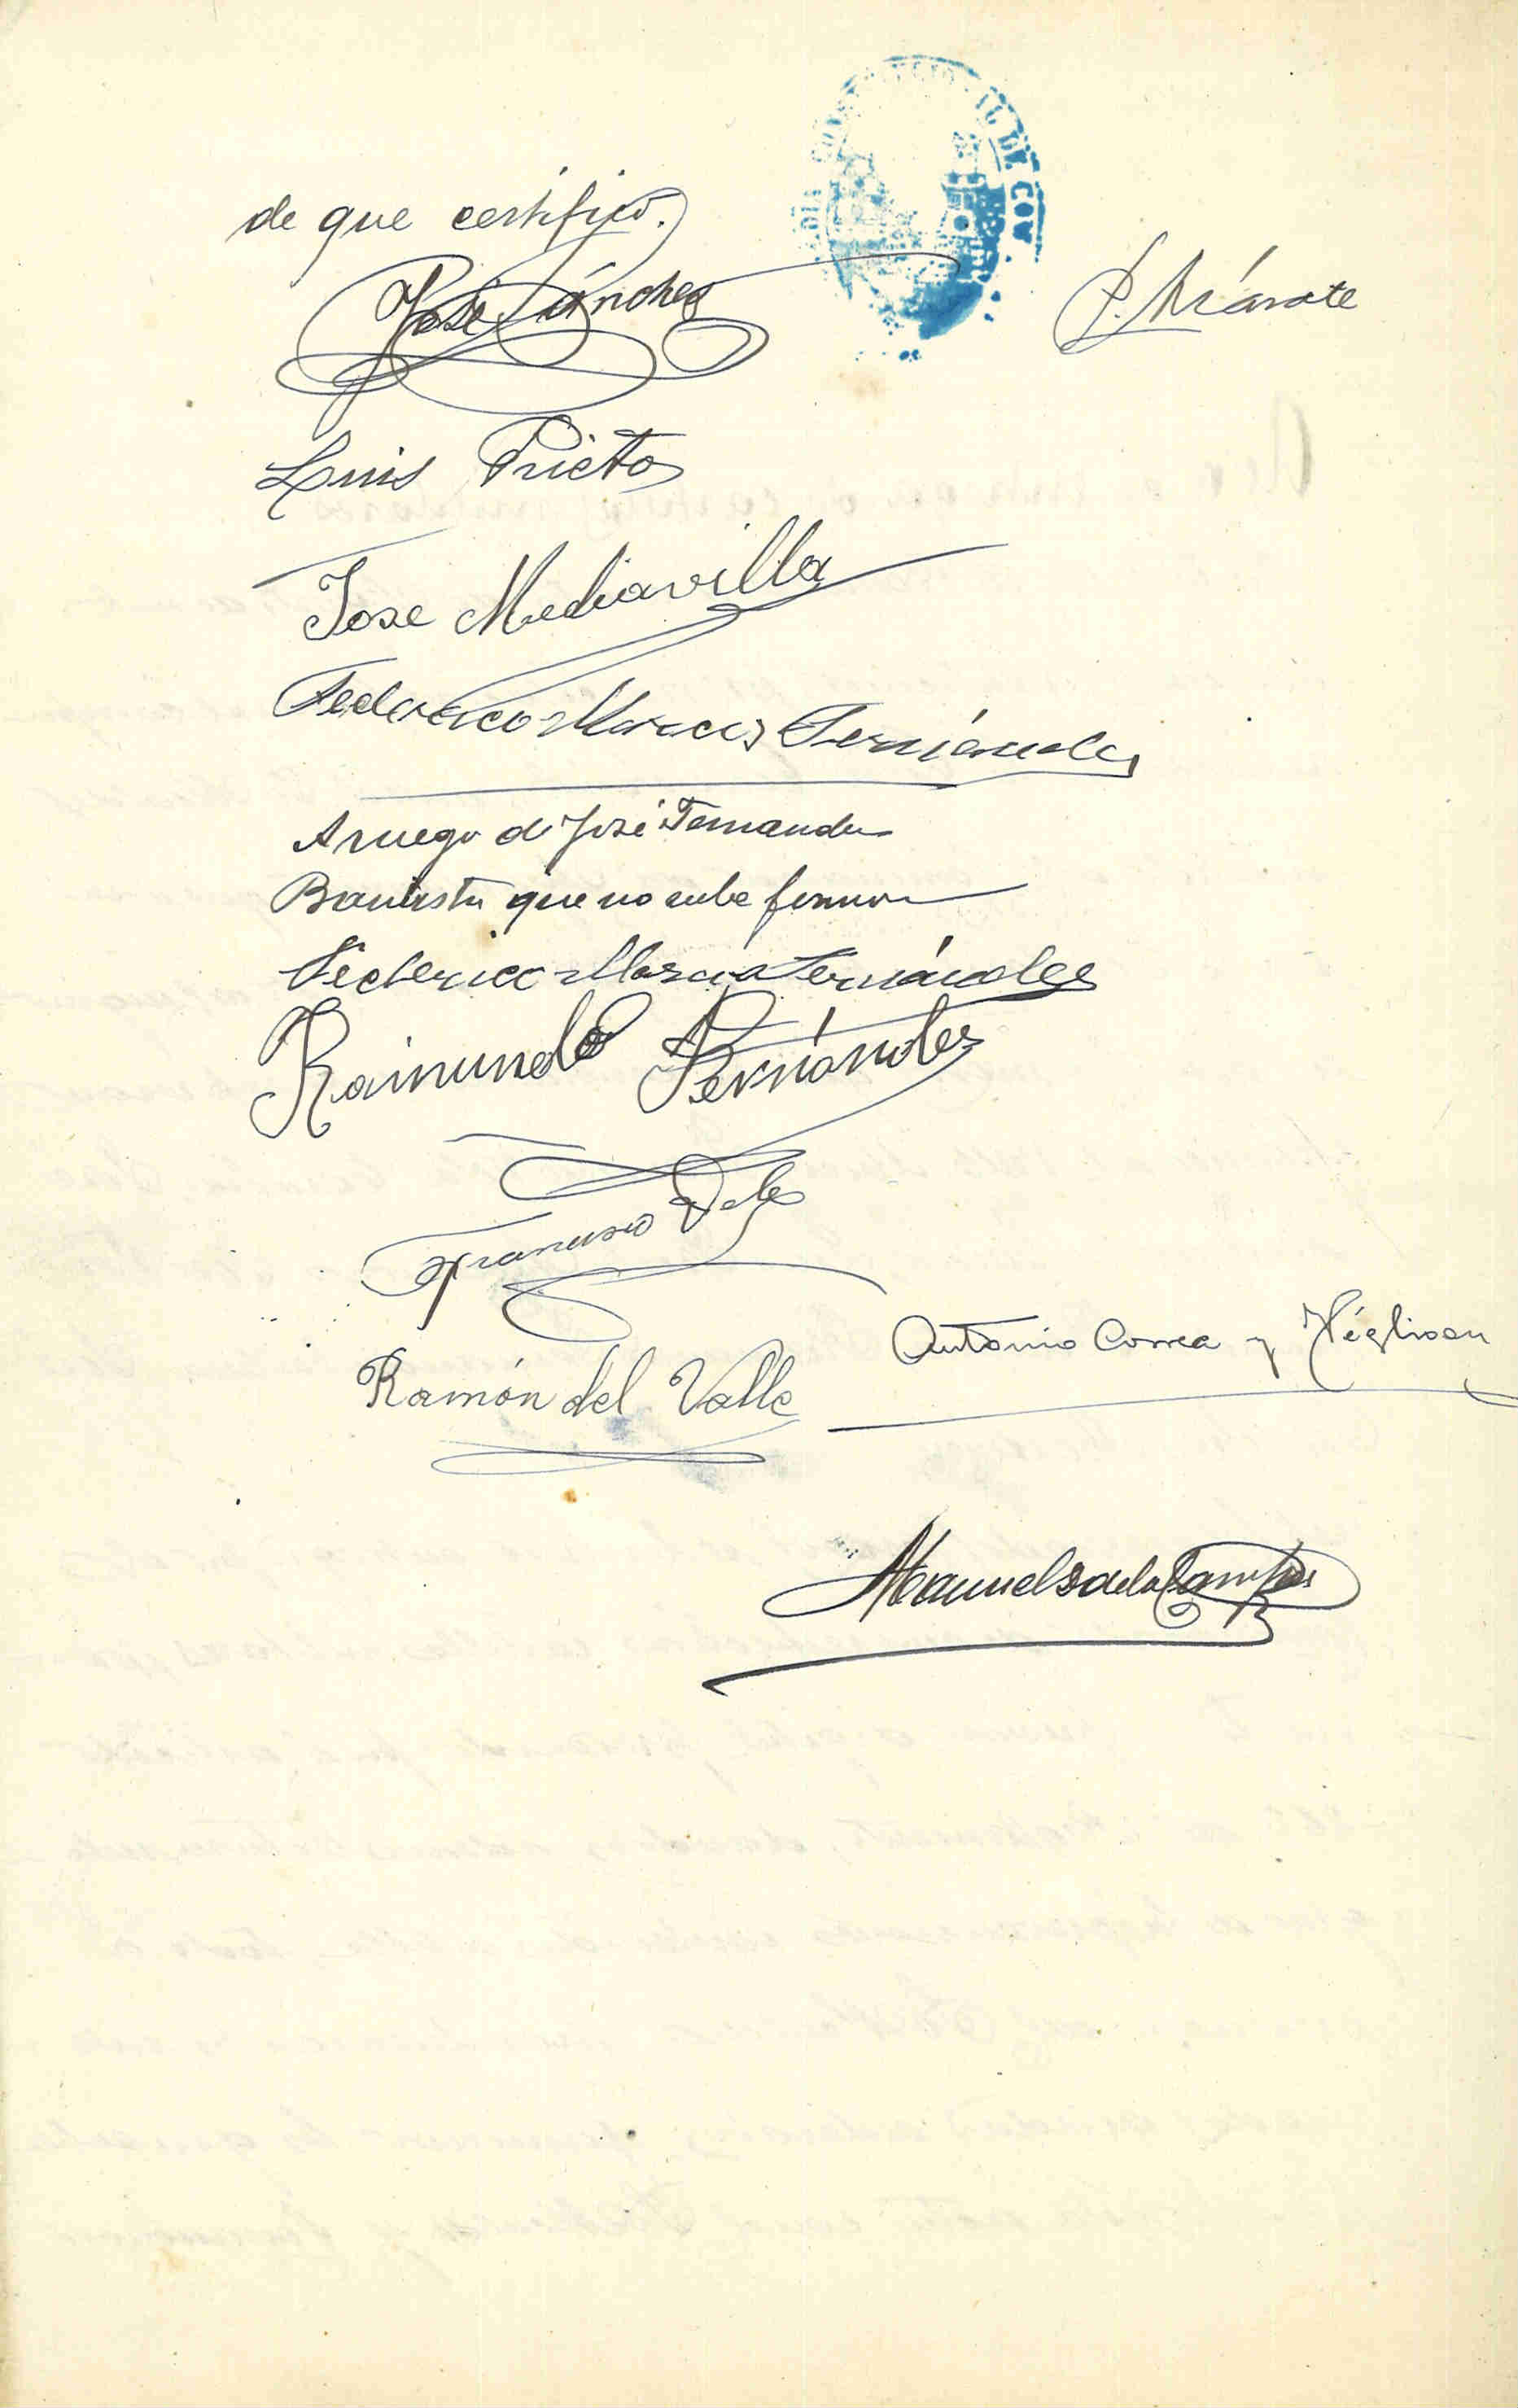 de que certifico.
José Sánchez
P. Aránote
Luis Prieto
Jose Mediavilla
Federico Fernández
A ruego de José Fernandez
Bautista que no sabe firmar
Federico Fernández
Raimundo Fernández
Francisco
Antonio Correa y
Ramón del Valle
Manuel
DE COV